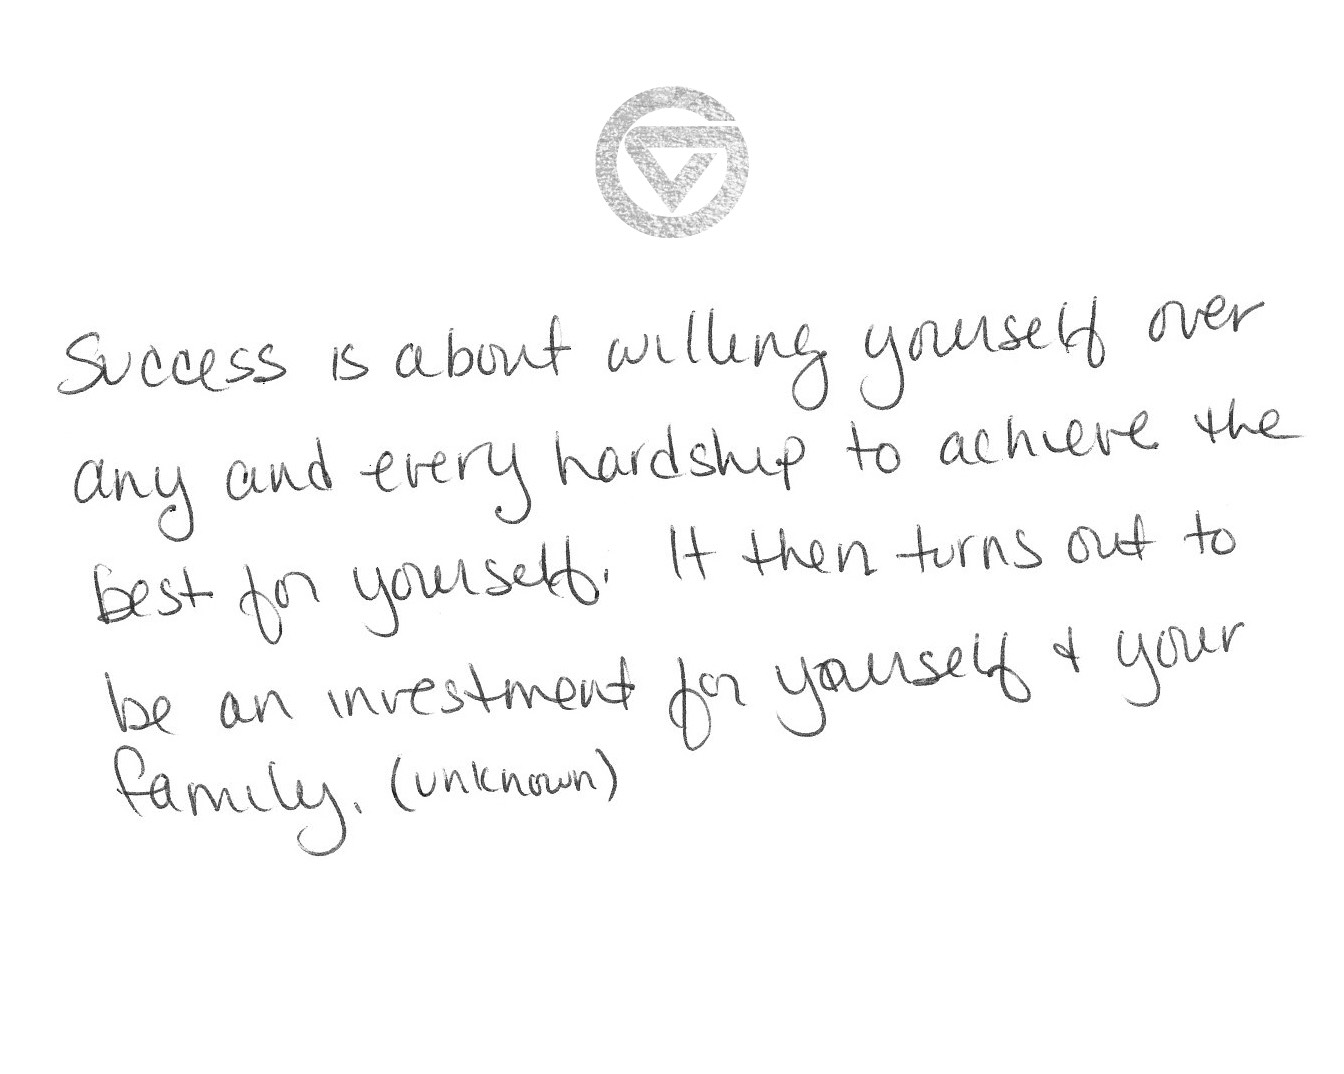 Success is about willing yourself over
any and every hardship to achieve the
best for yourself. It then turns out to
be an investment for yourself & your
family. (unknown)